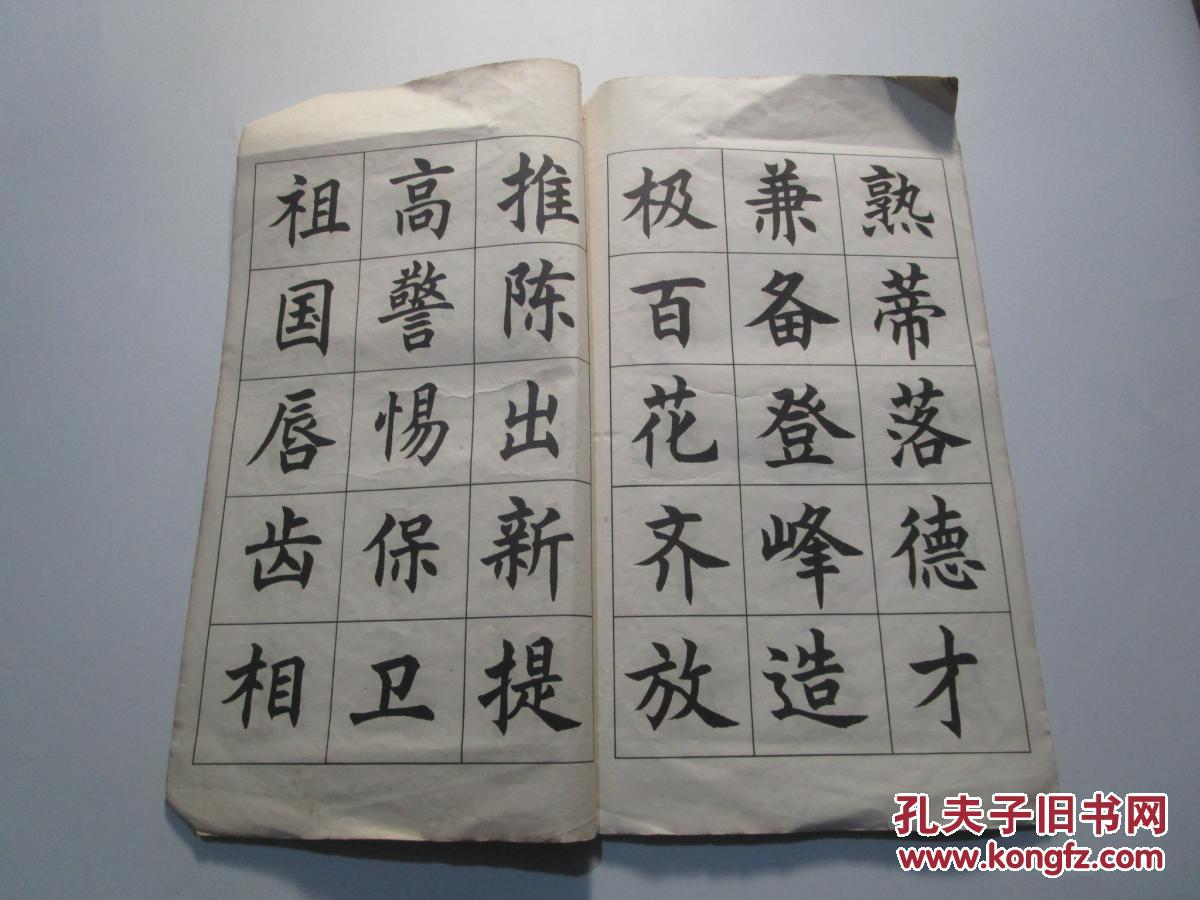 熟蒂落德才
兼备登峰造
极百花齐放
推陈出新提
高警惕保卫
祖国唇齿相
孔夫子旧书网
www.kongfz.com